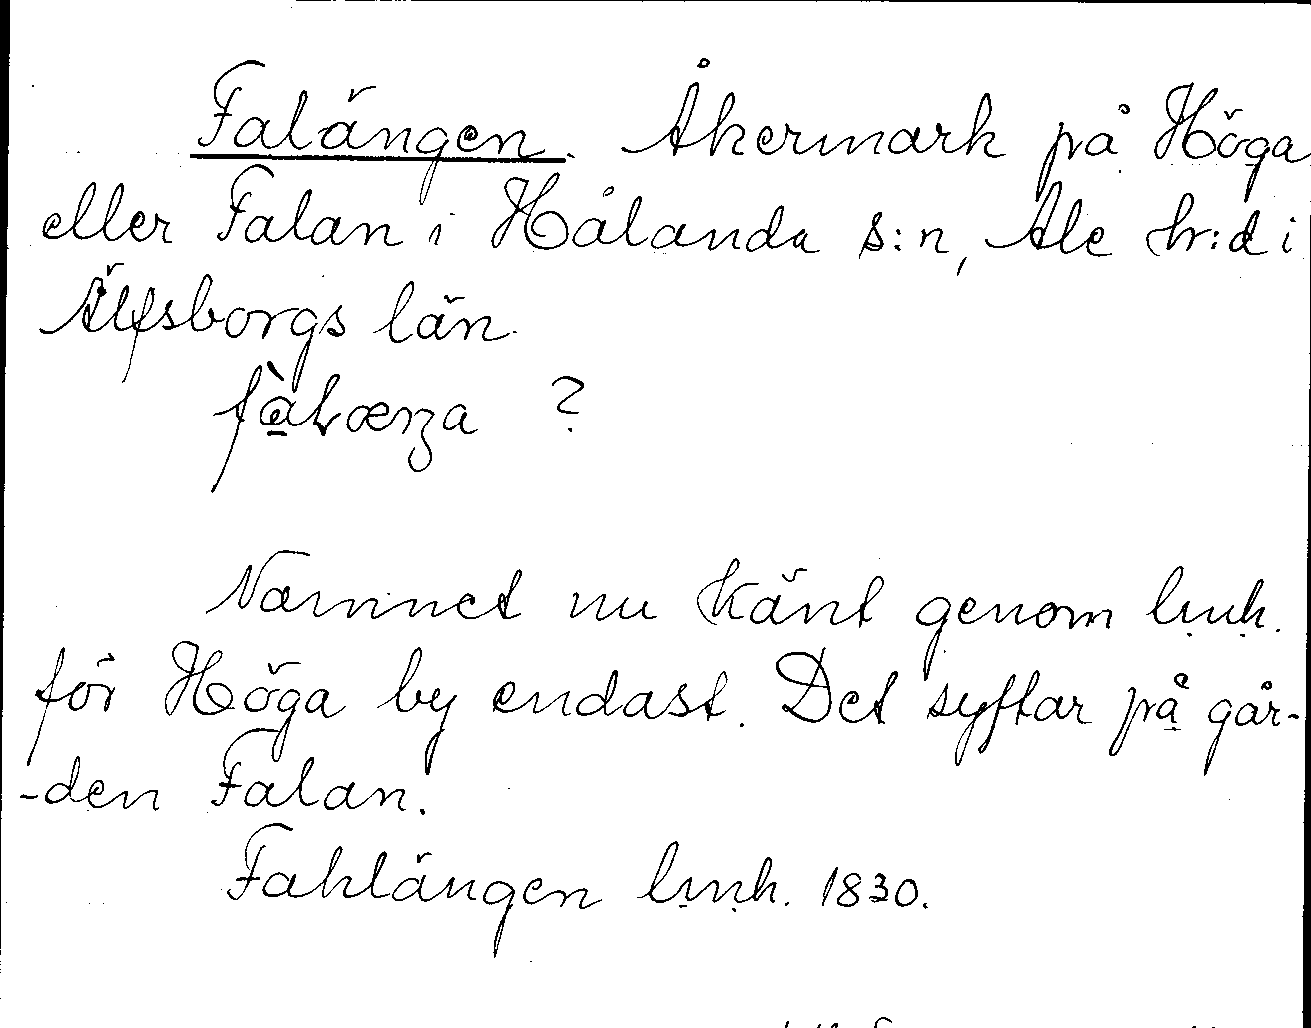 Falängen. Åkermark på Höga
eller Falan i Hålanda s:n, Ale h:d i
Älfsborgs län.
?
Namnet nu känt genom lmh.
för Höga by endast. Det syftar på går-
-den Falan.
Fahlängen lmh. 1830.